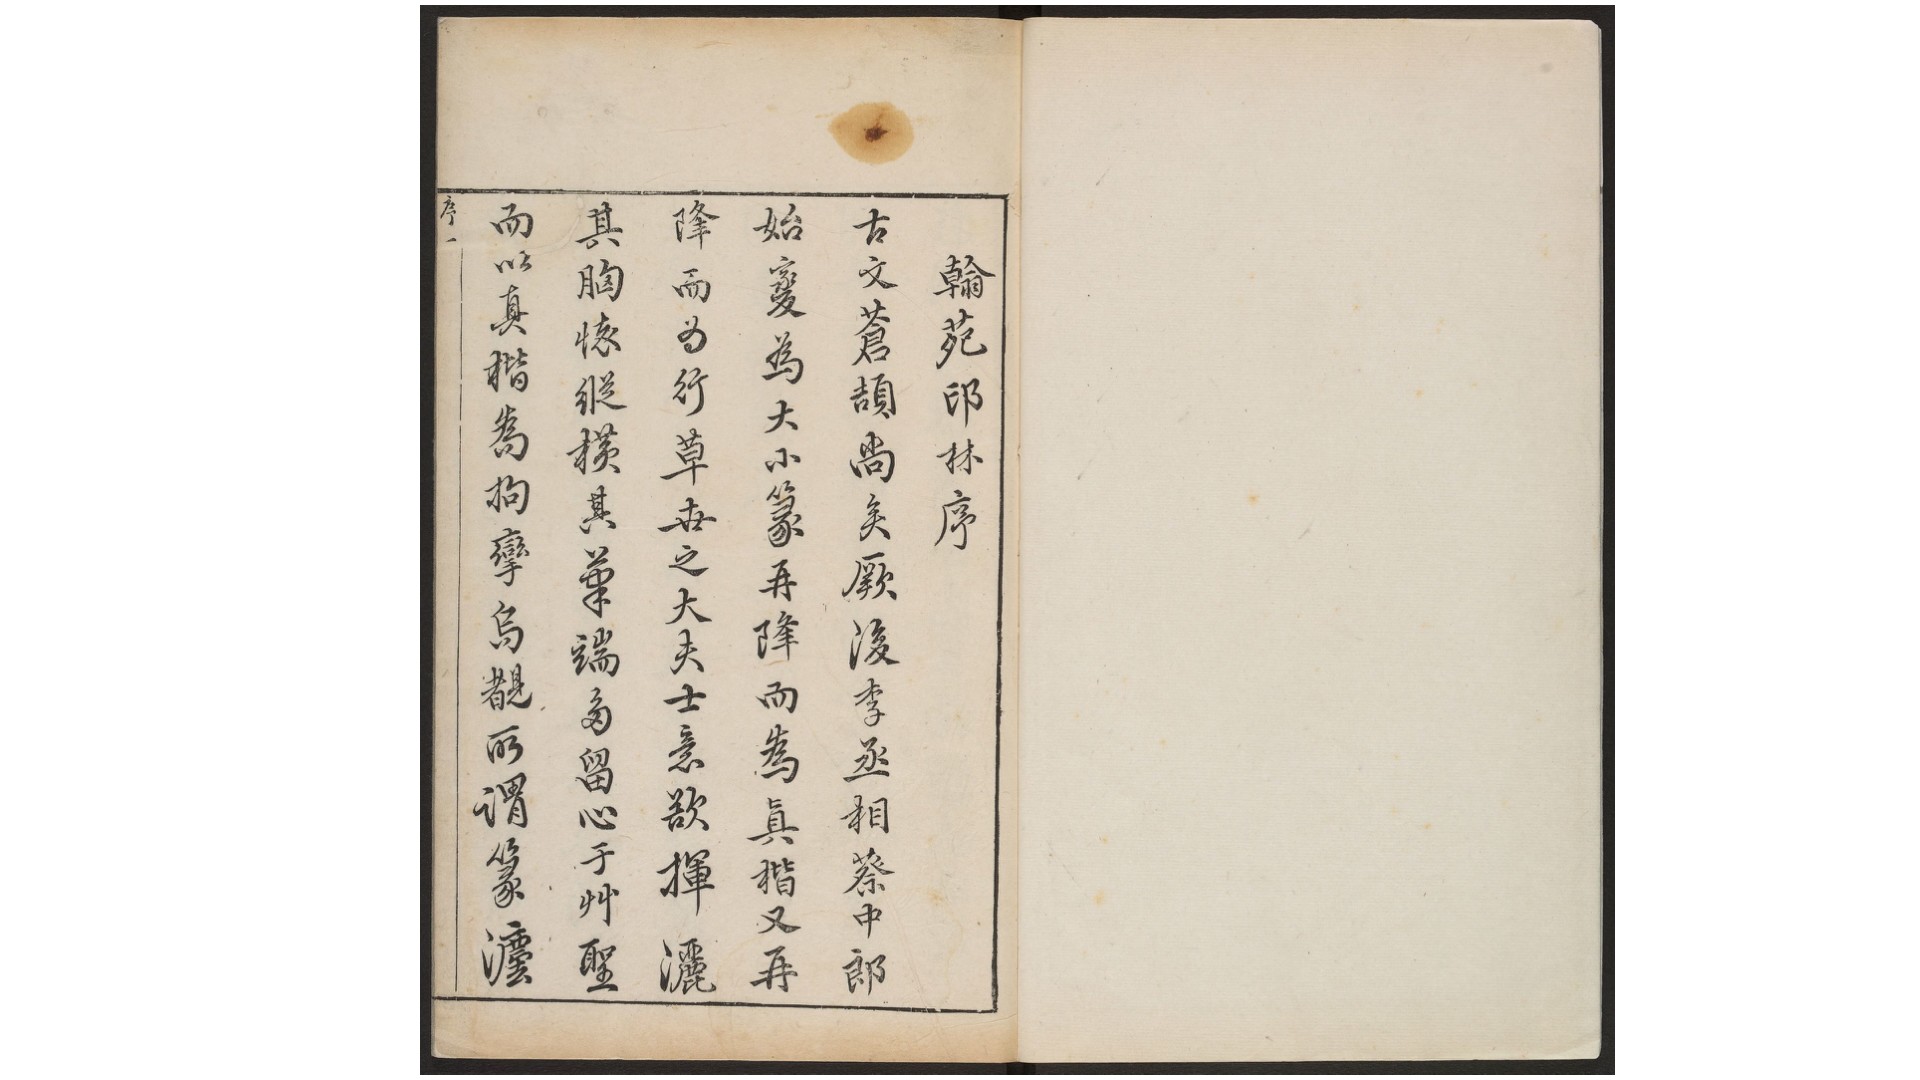 翰苑印林序
古文蒼頡尚矣厥後李丞相蔡中郎
始變為大小篆再降而為眞楷又再
降而为行草世之大夫士意欲揮灑
其胸懷縱横其筆端多留心于艸聖
而以真楷為拘攣烏覩所謂篆灋
序一